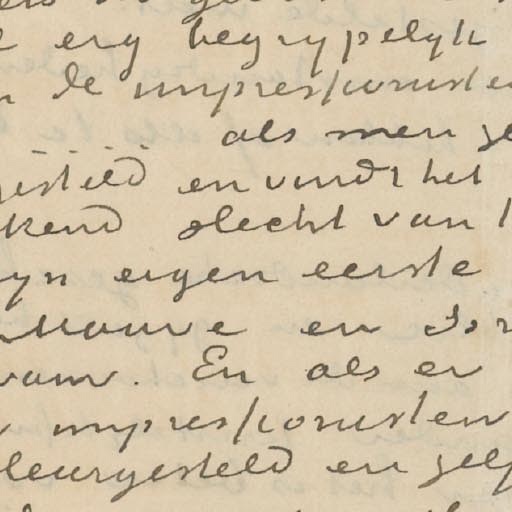 erg begrypelyk
de impressionisten
..... als men ze
gesteld en vindt het
kend slecht van
zyn eigen eerste
Mauve en Isr
kwam. En als er
impressionisten
leurgesteld en zelf